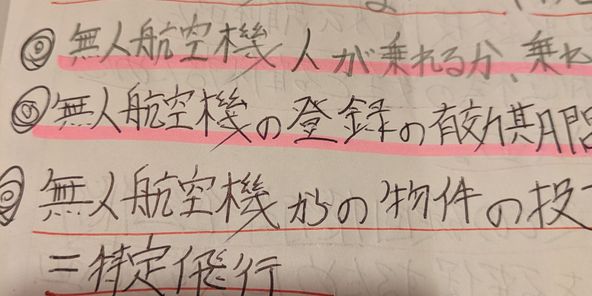 ◎無人航空機 人が乗れるか、乗れ
◎無人航空機の登録の有効期間
◎無人航空機からの物件の投下
=特定飛行